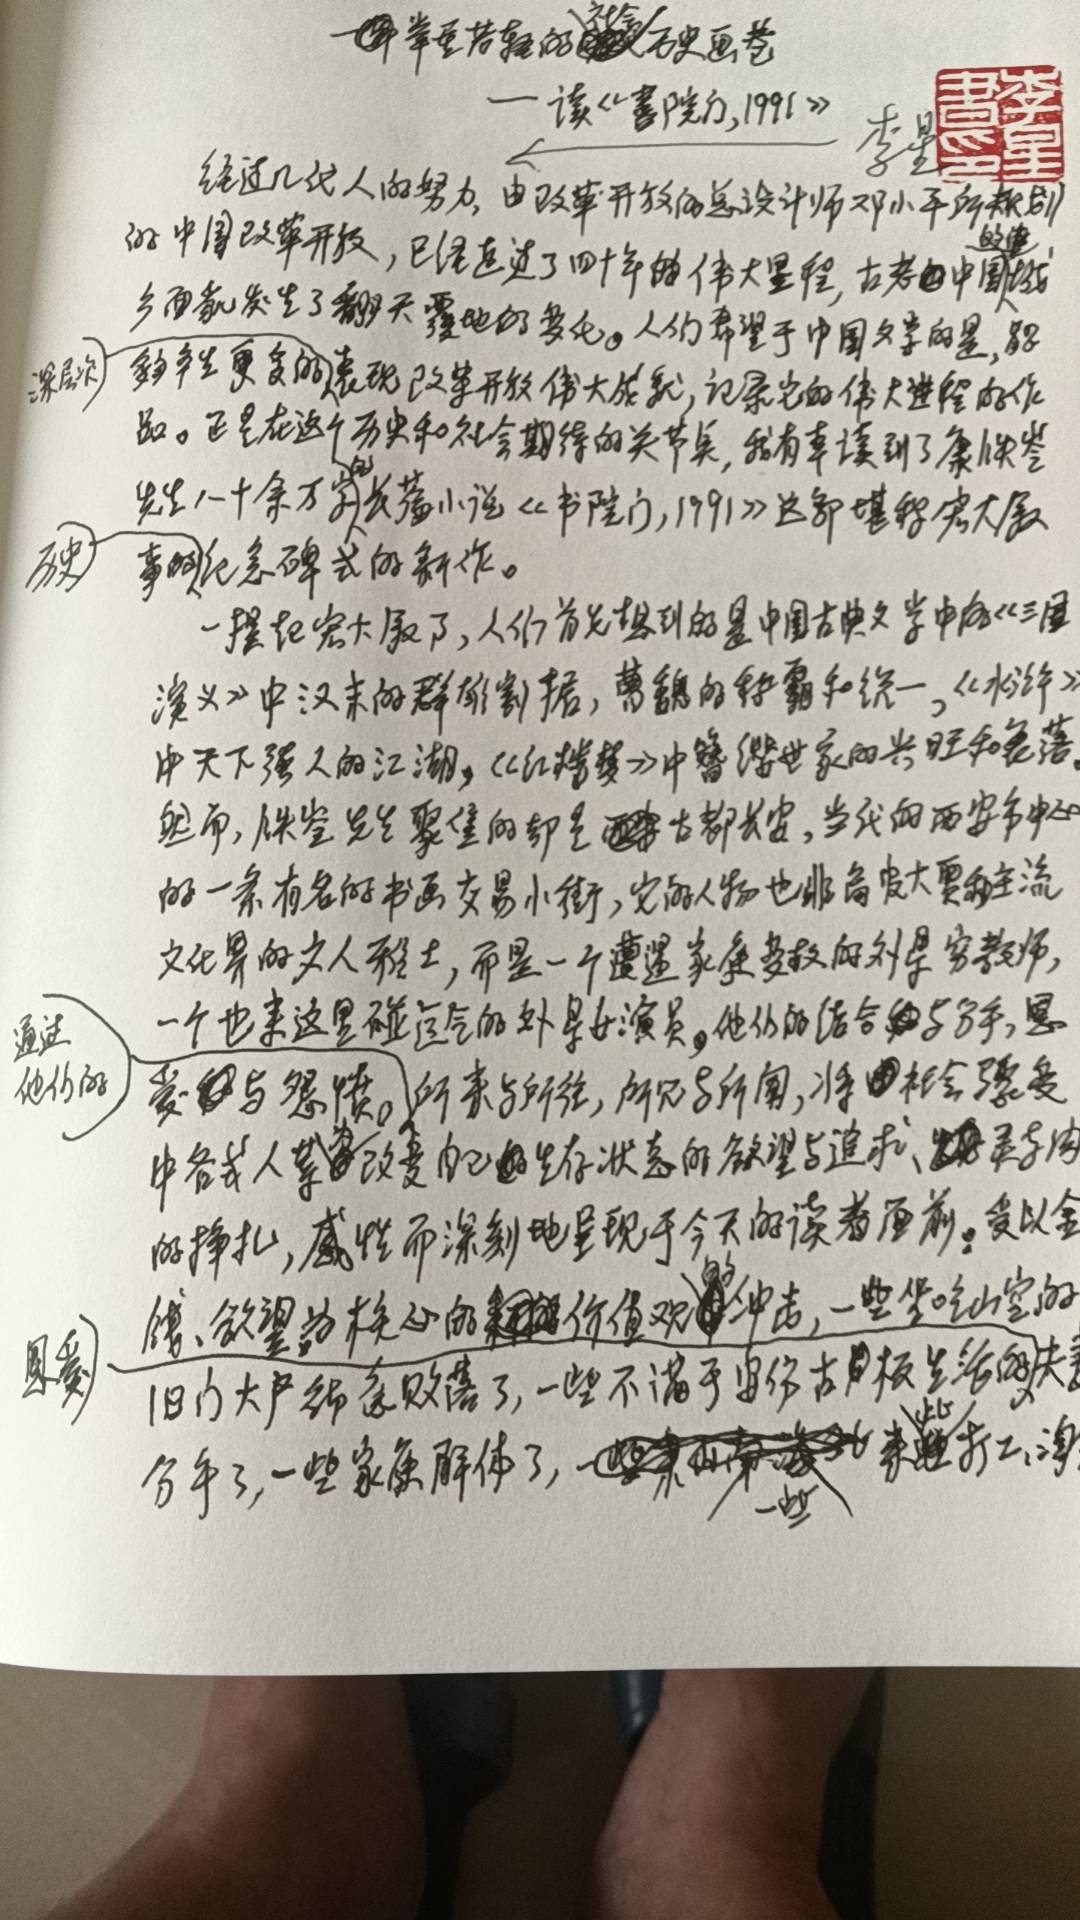 举重若轻的社会历史画卷
——读《书院门,1991》
李星
李星書印
经过几代人的努力,由改革开放的总设计师邓小平所规划
的中国改革开放,已经走过了四十年的伟大里程,古老的中国的城
乡面貌发生了翻天覆地的变化。人们希望于中国文学的是,能
够产生更多的深层次表现改革开放伟大成就,记录它的伟大进程的作
品。正是在这个历史和社会期待的关节点,我有幸读到了康铁岭
先生八十余万字的长篇小说《书院门,1991》这部堪称宏大叙
事的历史纪念碑式的新作。
一提起宏大叙事,人们首先想到的是中国古典文学中的《三国
演义》中汉末的群雄割据,曹魏的称霸和统一,《水浒》
中天下强人的江湖,《红楼梦》中簪缨世家的兴旺和衰落。
然而,铁岭先生聚焦的却是古都长安,当代的西安市中心
的一条有名的书画交易小街,它的人物也非高官大贾和主流
文化界的文人雅士,而是一个遭遇家庭变故的外县穷教师,
一个也来这里碰运气的外县女演员。他们的结合与分手,恩
爱与怨愤。通过他们的所来与所往,所见与所闻,将社会骤变
中各式人等改变自己生存状态的欲望与追求、灵与肉
的挣扎,感性而深刻地呈现于今天的读者面前。受以金
钱、欲望为核心的价值观的冲击,一些坐吃山空的
旧门大户彻底败落了,一些不满于安份古板生活的恩爱夫妻
分手了,一些家庭解体了,一些来此打工、淘